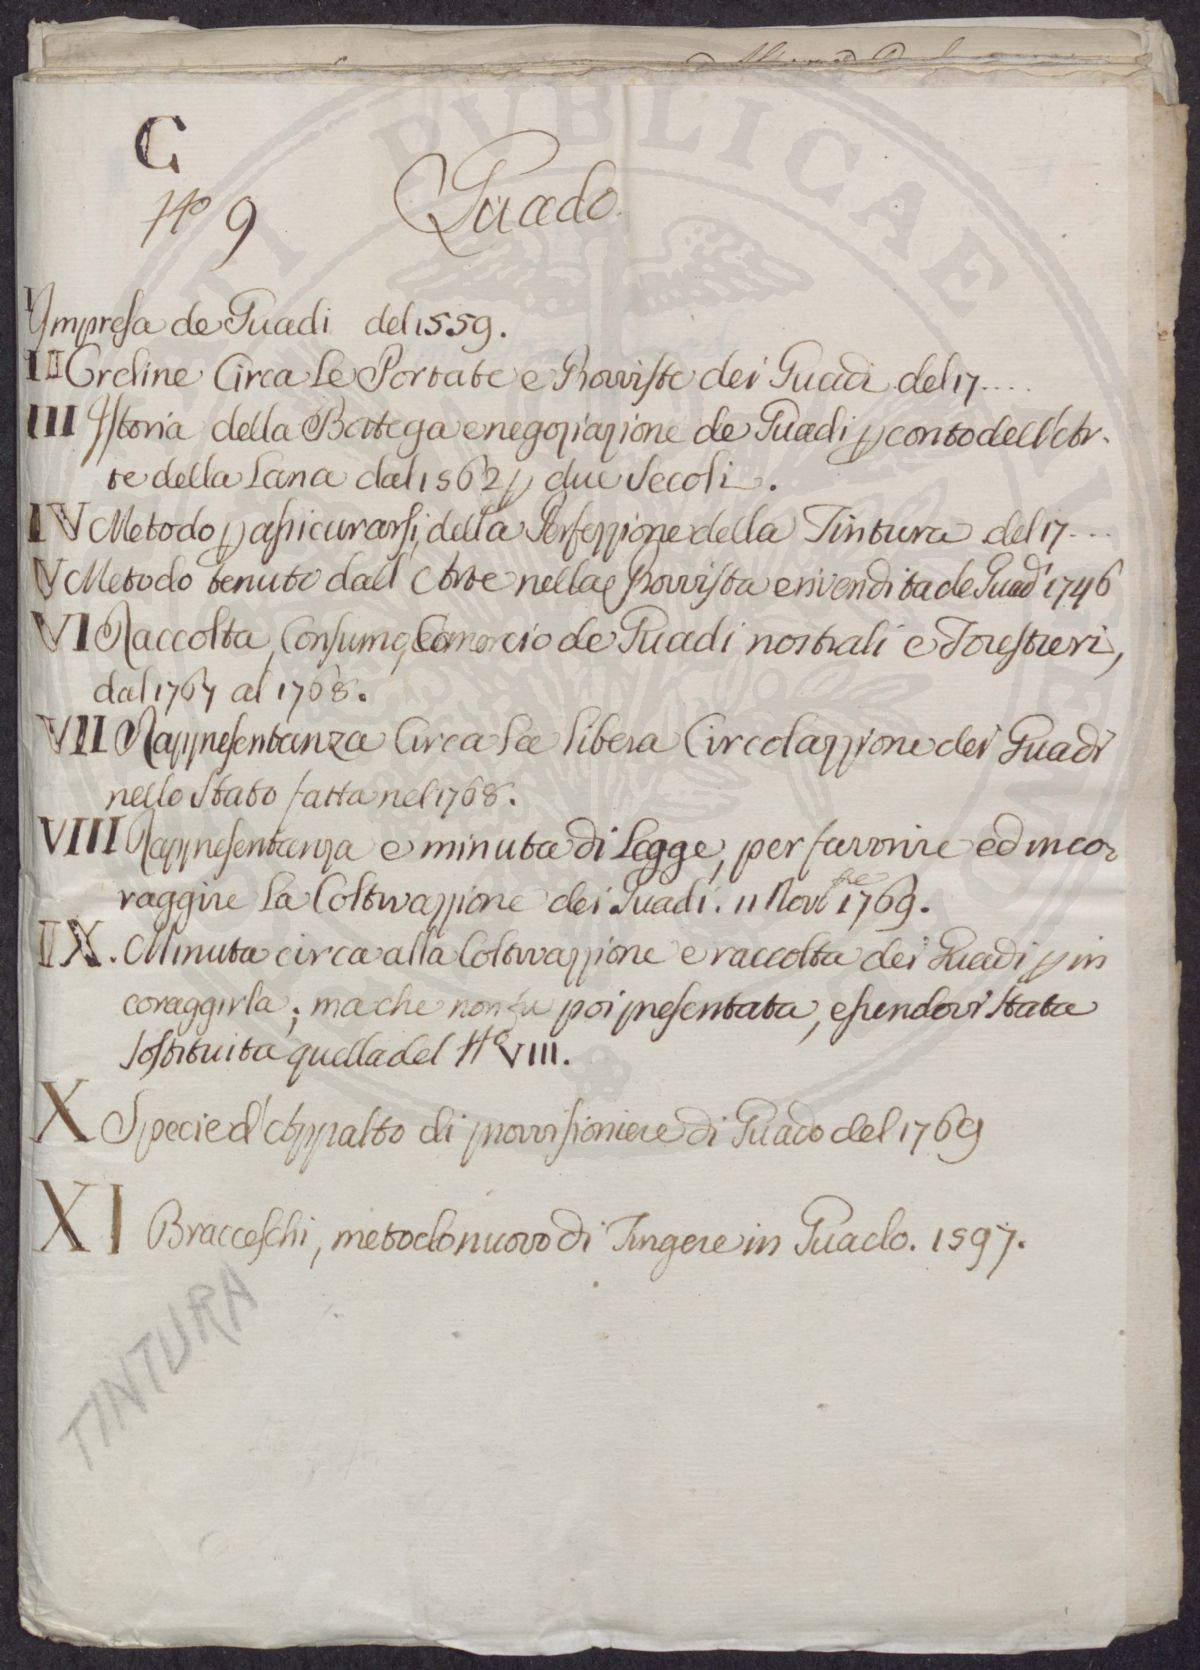 G
N.o 9 Guado.
I Impresa de Guadi del 1559.
II Ordine Circa Le Portate e Provviste dei Guadi del 17....
III Istoria della Bottega e negoziazione de Guadi p conto dell'Ar-
te della Lana dal 1562 p due Secoli.
IV Metodo p assicurarsi della Perfezzione della Tintura del 17...
V Metodo tenuto dall'Arte nella Provvista e rivendita de Guadi 1746
VI Raccolta, Consumo, e Comercio de Guadi nostrali e Forestieri,
dal 1767 al 1768.
VII Rappresentanza Circa La libera Circolazzione dei Guadi
nello Stato fatta nel 1768.
VIII Rappresentanza e minuta di Legge, per favorire ed inco-
raggire La Coltivazzione dei Guadi. 11 Novbre 1769.
IX. Minuta circa alla Coltivazzione e raccolta dei Guadi p in
coraggirla; ma che non fu poi presentata, essendovi stata
sostituita quella del No VIII.
X Specie d'Appalto di provvisioniere di Guado del 1769
XI Bracceschi, metodo nuovo di Tingere in Guado. 1597.
TINTURA
PUBLICAE